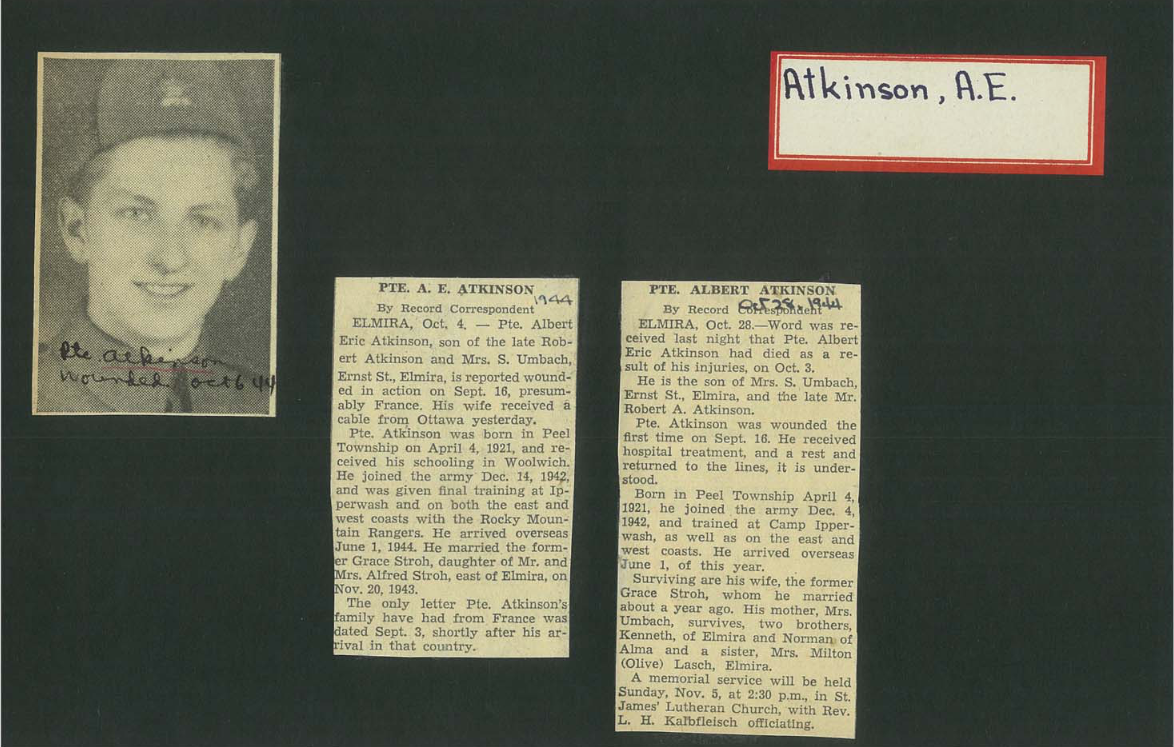 Atkinson, A.E.
Pte. Atkinson
Wounded Oct 6 44
PTE. A. E. ATKINSON
1944
By Record Correspondent
ELMIRA, Oct. 4. — Pte. Albert
Eric Atkinson, son of the late Rob-
ert Atkinson and Mrs. S. Umbach,
Ernst St., Elmira, is reported wound-
ed in action on Sept. 16, presum-
ably France. His wife received a
cable from Ottawa yesterday.
Pte. Atkinson was born in Peel
Township on April 4, 1921, and re-
ceived his schooling in Woolwich.
He joined the army Dec. 14, 1942,
and was given final training at Ip-
perwash and on both the east and
west coasts with the Rocky Moun-
tain Rangers. He arrived overseas
June 1, 1944. He married the form-
er Grace Stroh, daughter of Mr. and
Mrs. Alfred Stroh, east of Elmira, on
Nov. 20, 1943.
The only letter Pte. Atkinson's
family have had from France was
dated Sept. 3, shortly after his ar-
rival in that country.
PTE. ALBERT ATKINSON
Oct 28, 1944
By Record Correspondent
ELMIRA, Oct. 28.—Word was re-
ceived last night that Pte. Albert
Eric Atkinson had died as a re-
sult of his injuries, on Oct. 3.
He is the son of Mrs. S. Umbach,
Ernst St., Elmira, and the late Mr.
Robert A. Atkinson.
Pte. Atkinson was wounded the
first time on Sept. 16. He received
hospital treatment, and a rest and
returned to the lines, it is under-
stood.
Born in Peel Township April 4,
1921, he joined the army Dec. 4,
1942, and trained at Camp Ipper-
wash, as well as on the east and
west coasts. He arrived overseas
June 1, of this year.
Surviving are his wife, the former
Grace Stroh, whom he married
about a year ago. His mother, Mrs.
Umbach, survives, two brothers,
Kenneth, of Elmira and Norman of
Alma and a sister, Mrs. Milton
(Olive) Lasch, Elmira.
A memorial service will be held
Sunday, Nov. 5, at 2:30 p.m., in St.
James' Lutheran Church, with Rev.
L. H. Kalbfleisch officiating.